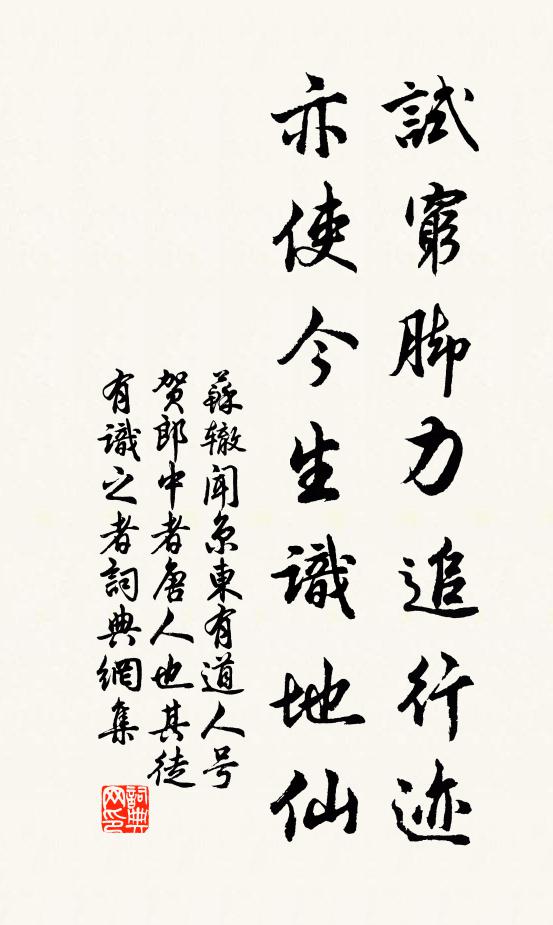 試窮脚力追行迹
亦使今生識地仙
蘇辙闻京東有道人号
贺郎中者唐人也其徒
有識之者詞典網集
詞典网印